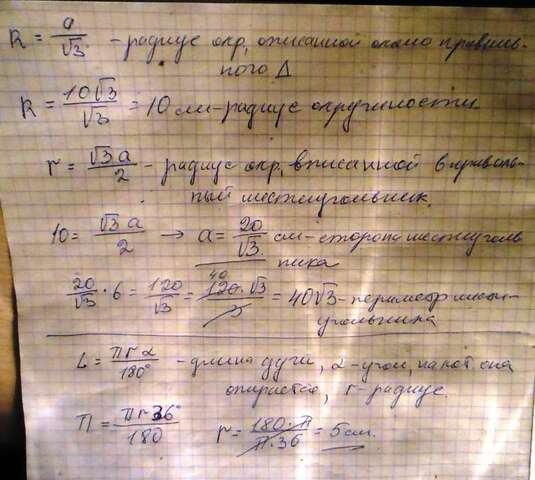 R = a/√3 - радиус окр, описанной около правиль-
ного Δ
R = 10√3/√3 = 10 см - радиус окружности
r = √3a/2 - радиус окр, вписанной в правиль-
ный шестиугольник.
10 = √3a/2 → a = 20/√3 см - сторона шестиуголь
ника
20/√3 · 6 = 120/√3 = 120·√3/3 40 = 40√3 - периметр шести-
угольника
L = πrα/180° - длина дуги, α-угол, на кот. она
опирается, r - радиус.
π = πr36°/180 r = 180·π/π·36 = 5 см.